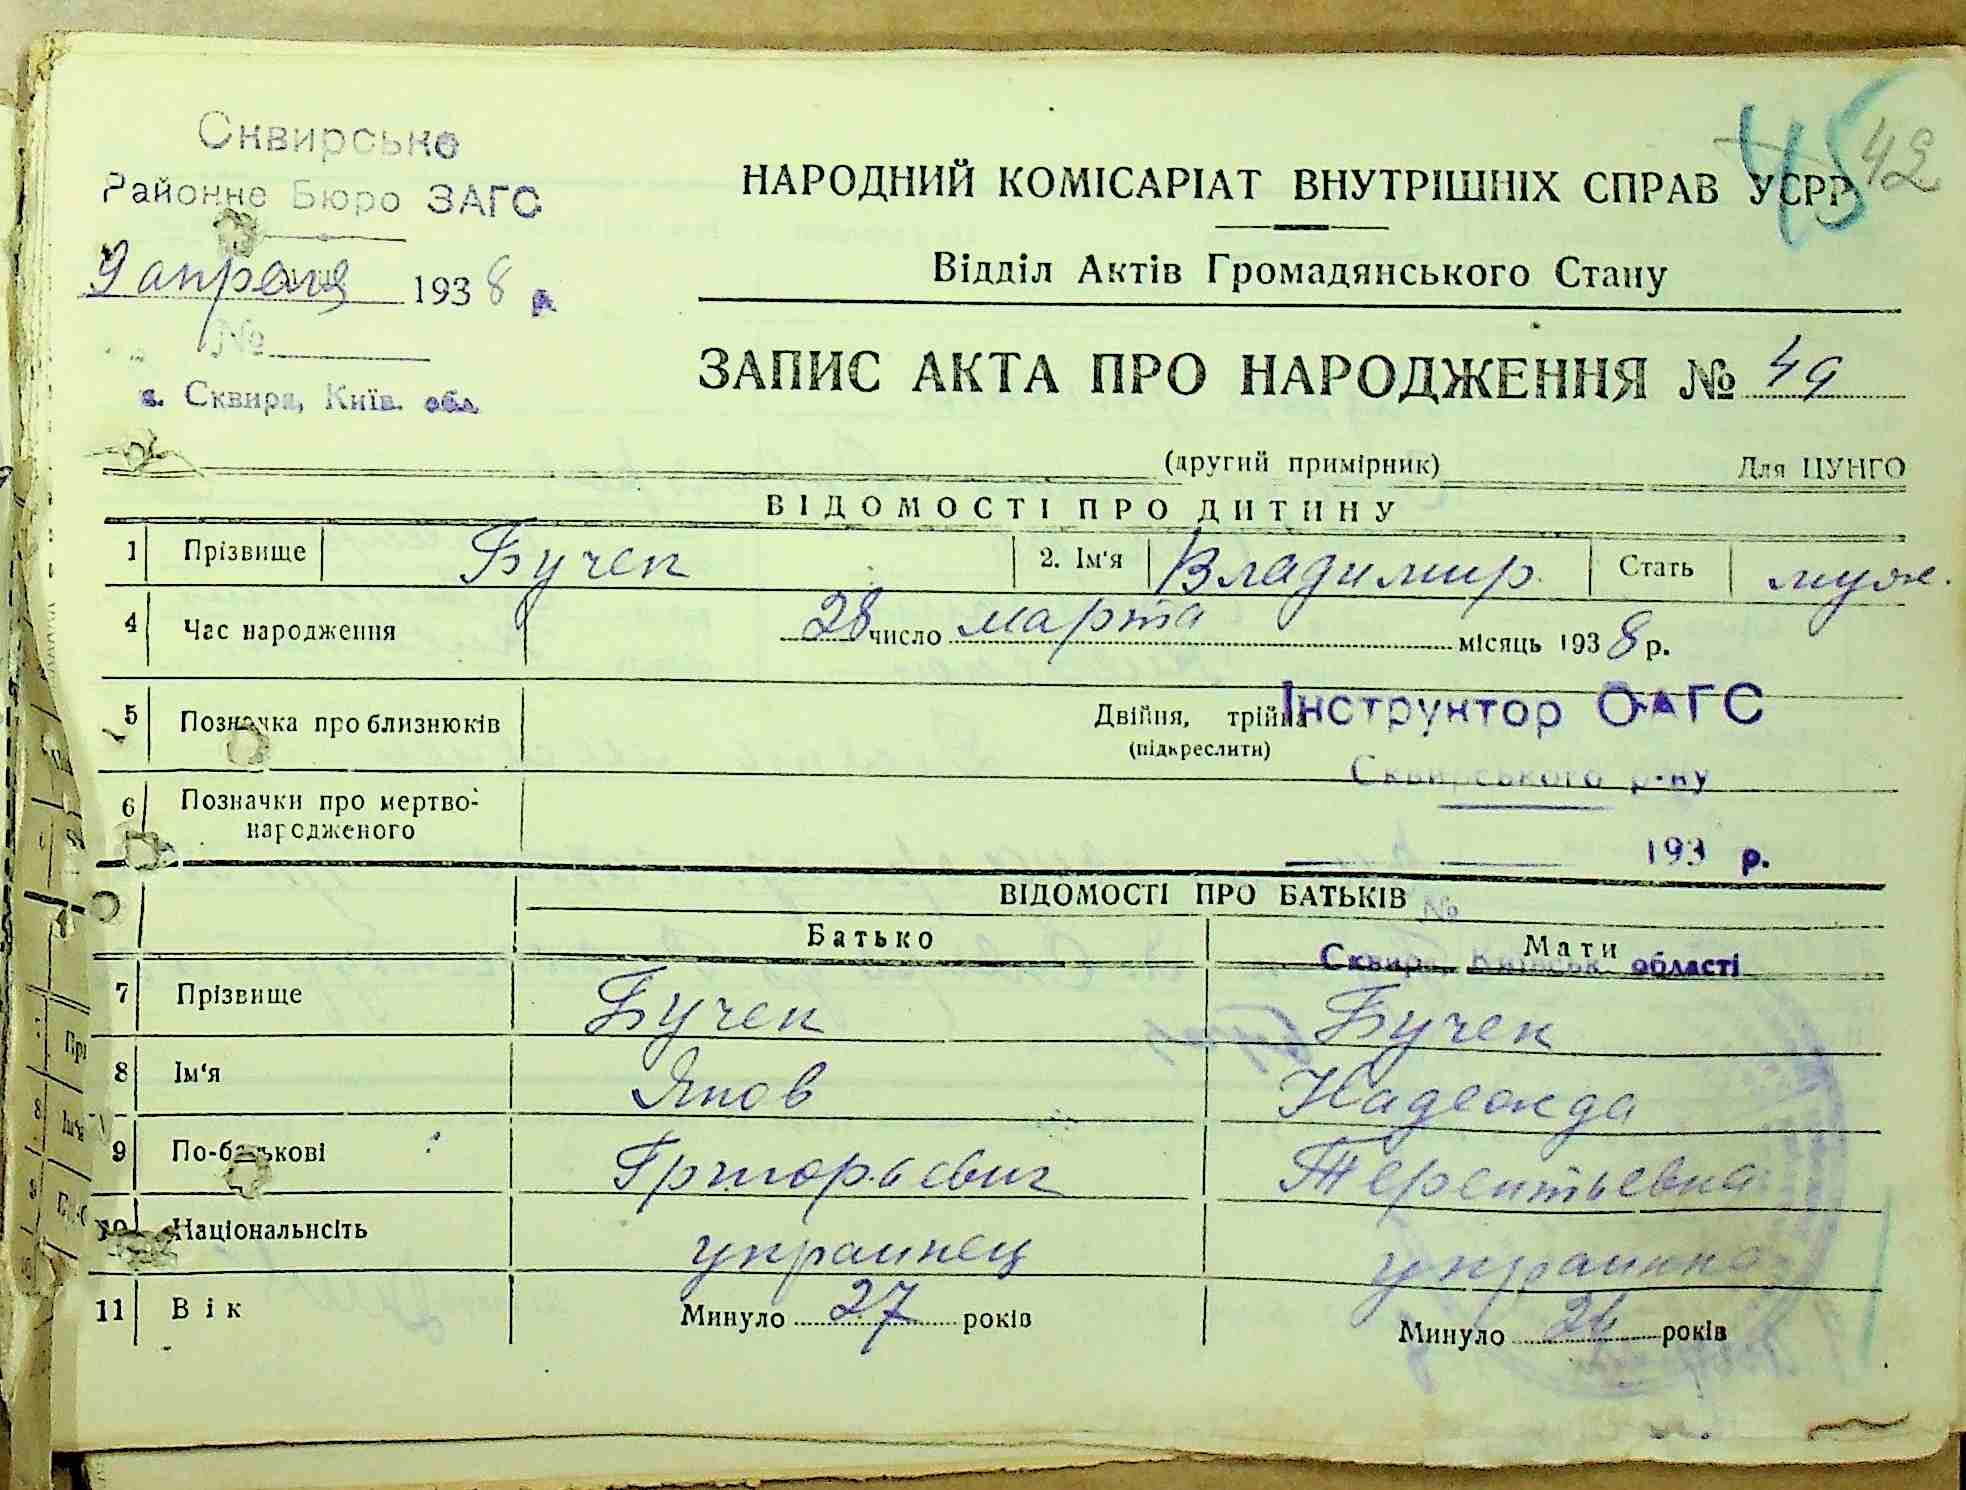 45 42
Сквирське
Районне Бюро ЗАГС
9 апреля 1938 р.
№
м. Сквира, Київ. обл.
НАРОДНИЙ КОМІСАРІАТ ВНУТРІШНІХ СПРАВ УСРР
Відділ Актів Громадянського Стану
ЗАПИС АКТА ПРО НАРОДЖЕННЯ № 49
(другий примірник) Для ЦУНГО
ВІДОМОСТІ ПРО ДИТИНУ
1 Прізвище Бучек 2. Ім'я Владимир Стать муж.
4 Час народження 28 число марта місяць 1938 р.
5 Позначка про близнюків Двійня, трійня
(підкреслити)
Інструктор ОАГС
Сквирського р-ну
6 Позначки про мертво-
народженого
193 р.
№
ВІДОМОСТІ ПРО БАТЬКІВ
Батько Мати
Сквира, Київськ. області
7 Прізвище Бучек Бучек
8 Ім'я Яков Надежда
9 По-батькові Григорьевич Терентьевна
10 Національнсіть украинец украинка
11 Вік Минуло 27 років Минуло 26 років